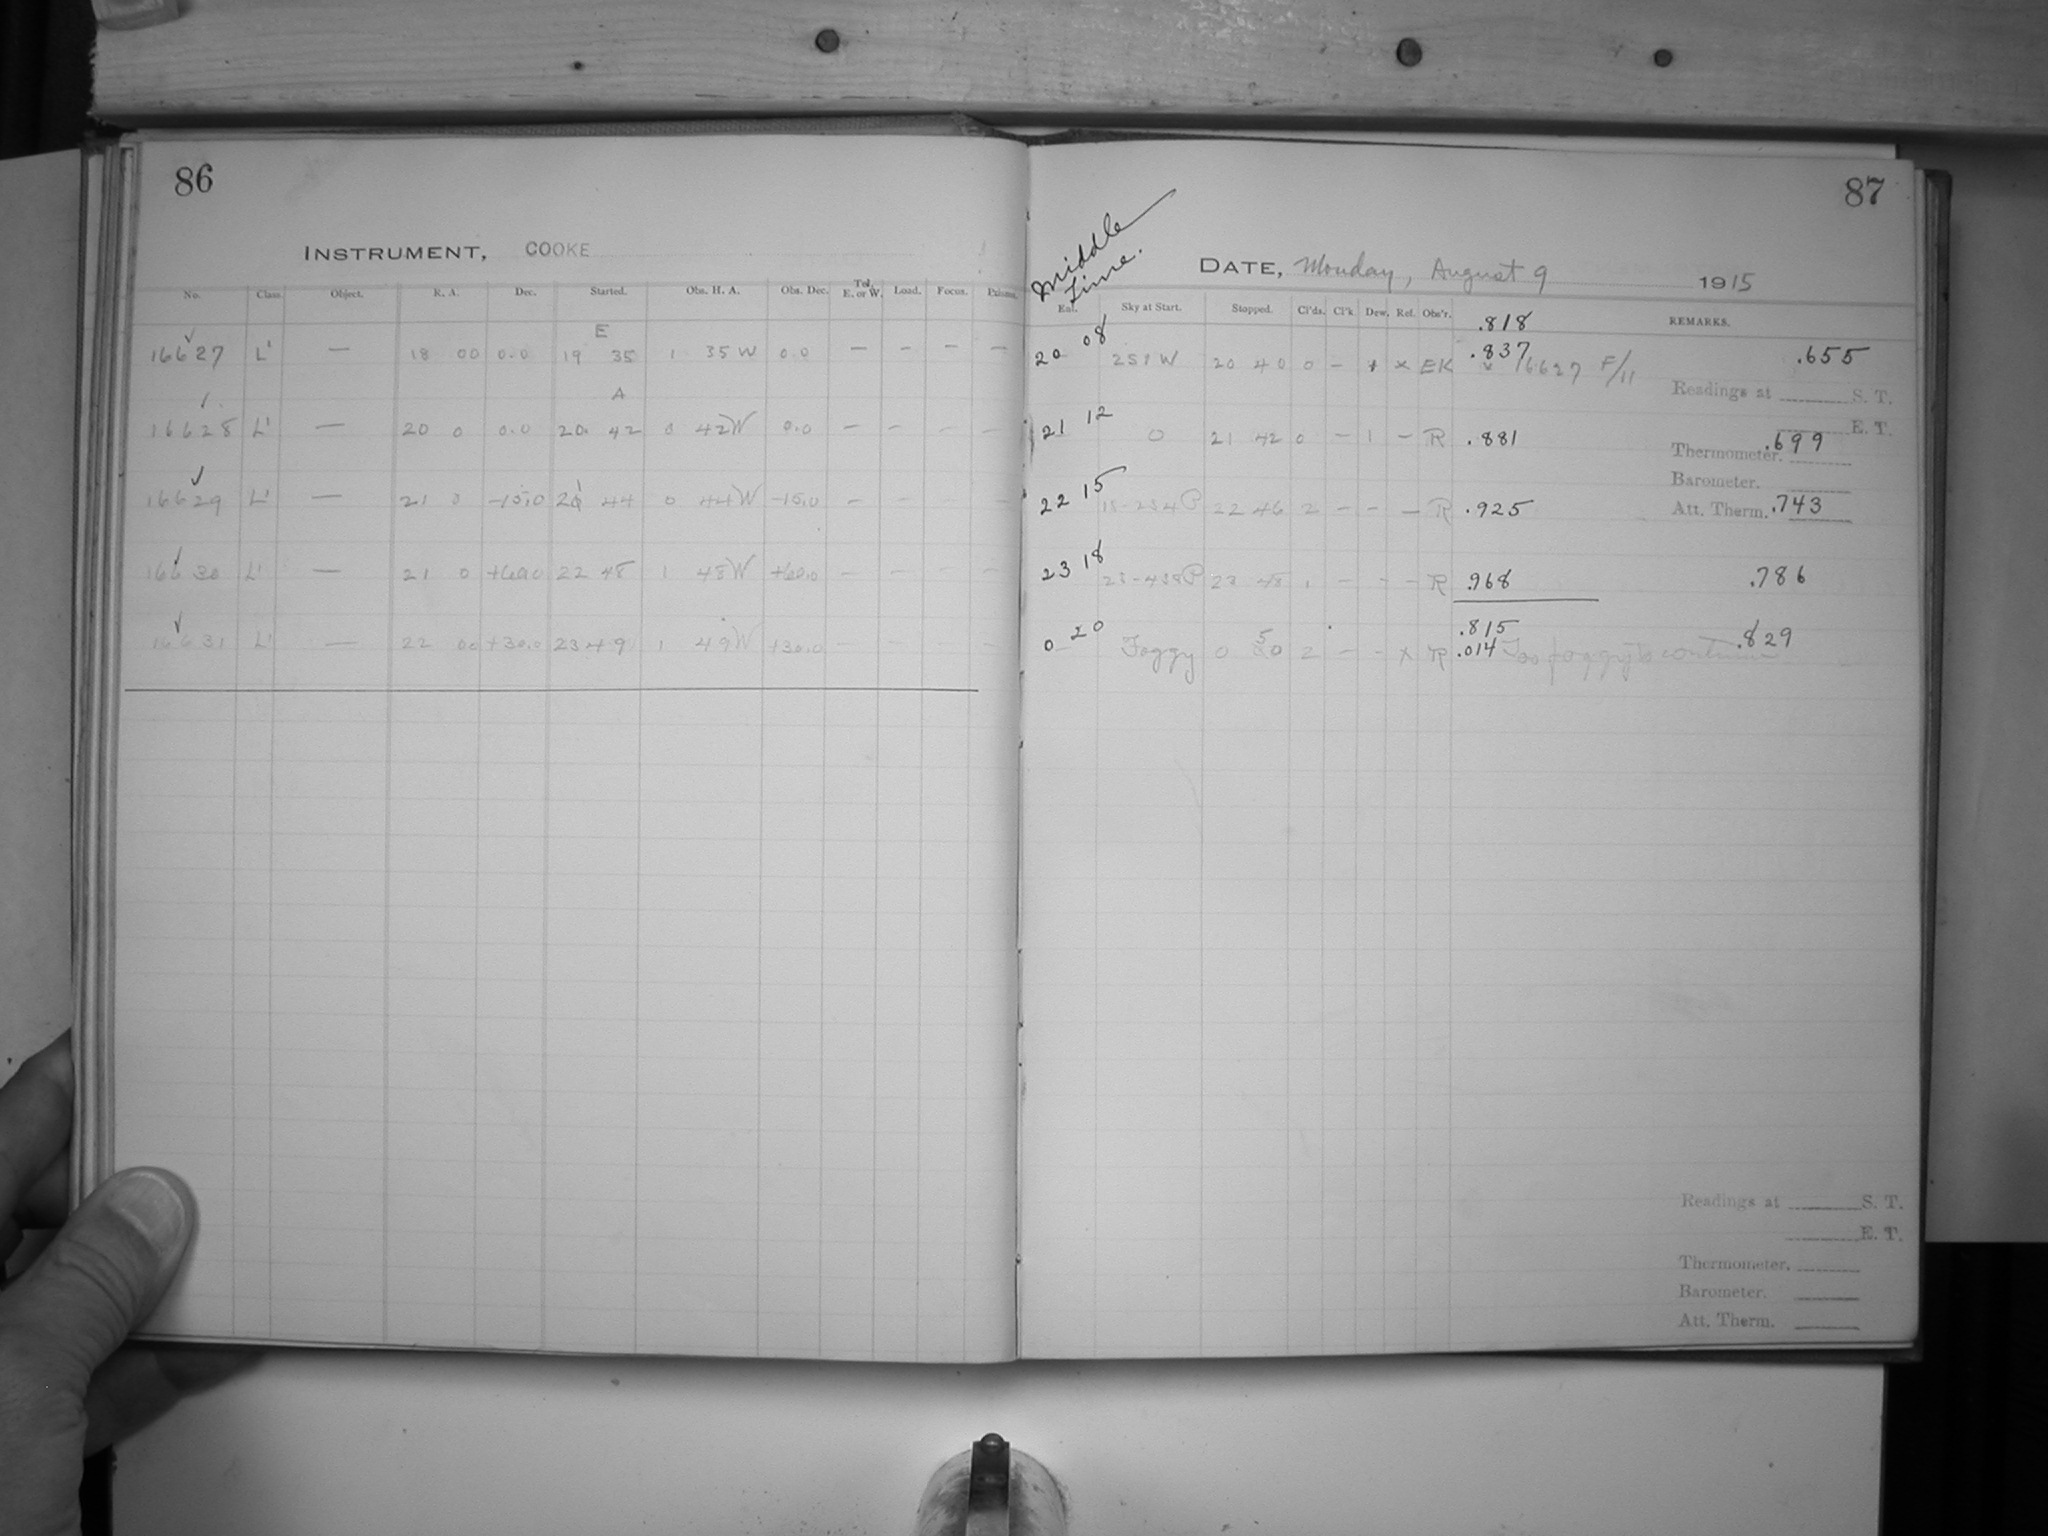 86
INSTRUMENT, COOKE
No. Class. Object. R. A. Dec. Started. Obs. H. A. Obs. Dec. Tel. E. or W. Load. Focus.
E
16627 L' — 18 00 0.0 19 35 1 35 W 0.0 — — — —
A
16628 L' — 20 0 0.0 20 42 0 42 W 0.0 — — — —
16629 L' — 21 0 -15.0 21 44 0 44 W -15.0 — — — —
16630 L' — 21 0 +60.0 22 48 1 48 W +60.0 — — — —
16631 L' — 22 00 +30.0 23 49 1 49 W +30.0 — — — —
87
Middle
Time.
DATE, Monday, August 9 1915
Sky at Start. Stopped. Cl'ds. Cl'k Dew. Ref. Obs'r. REMARKS.
.818
20 08 251 W 20 40 0 — x EK .837 16627 F/11 .655
Readings at S. T.
E. T.
21 12 0 21 42 0 — 1 — R .881 .699
Thermometer.
Barometer.
22 15 22 46 2 — — — R .925 Att. Therm. .743
23 18 23 48 1 — — — R .968 .786
.815
0 20 Foggy 0 50 2 — — x R .014 Too foggy to continue .829
Readings at S. T.
E. T.
Thermometer.
Barometer.
Att. Therm.